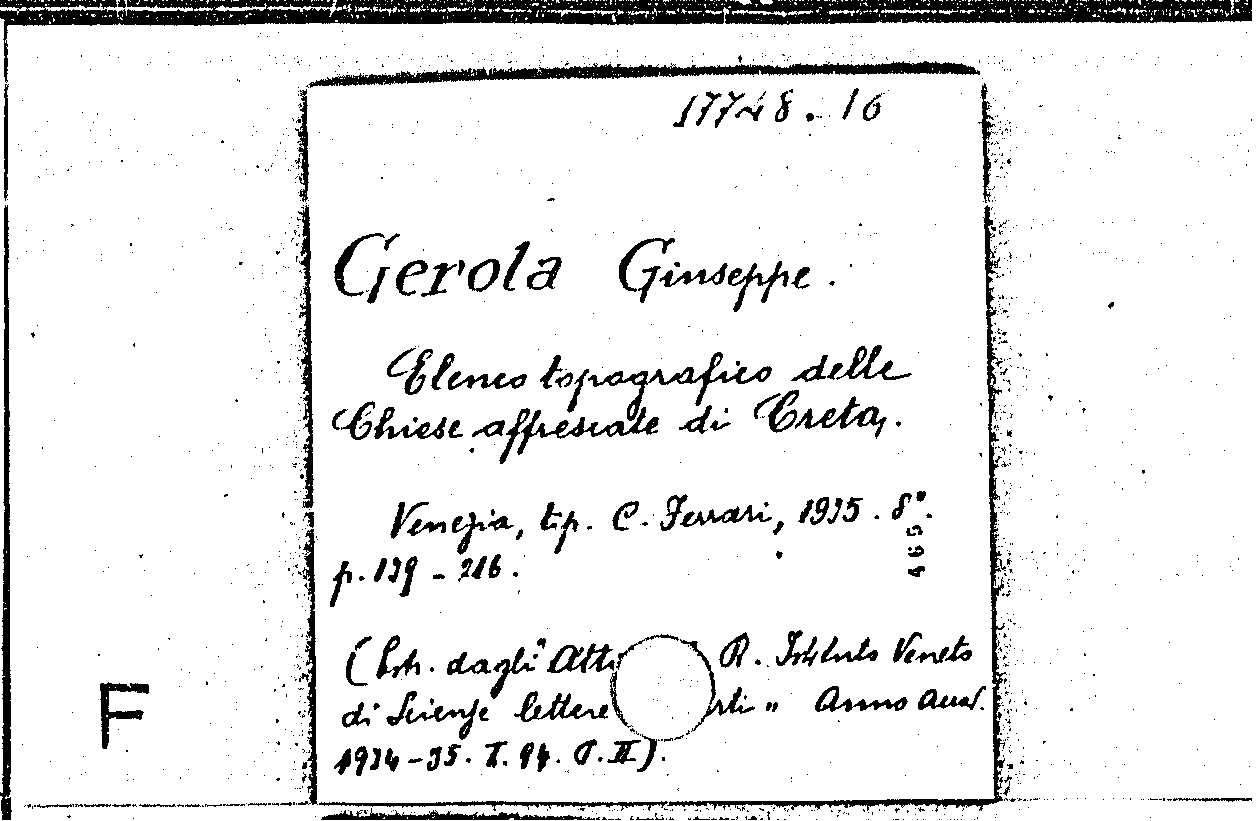 17748.16
Gerola Giuseppe.
Elenco topografico delle
Chiese affrescate di Creta.
Venezia, tip. C. Ferrari, 1935. 8°.
p. 139 - 216.
4695
(Estr. dagli "Atti R. Istituto Veneto
di Scienze lettere rti" Anno Accad.
1934-35. T. 94. P. II).
F